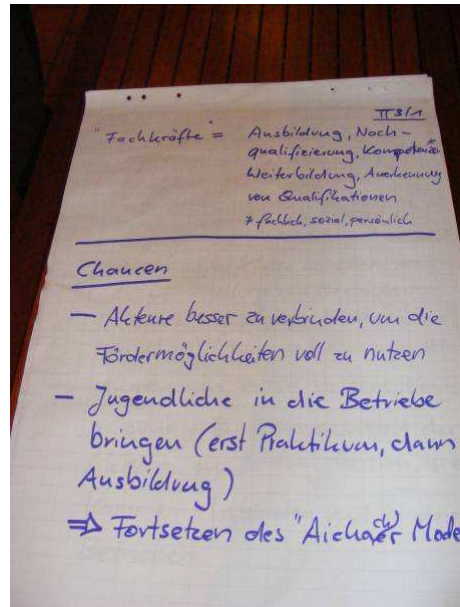 TT3/1
"Fachkräfte" = Ausbildung, Nach-
qualifizierung, Kompetenz*
Weiterbildung, Anerkennung
von Qualifikationen
* fachlich, sozial, persönlich
Chancen
— Akteure besser zu verbinden, um die
Fördermöglichkeiten voll zu nutzen
— Jugendliche in die Betriebe
bringen (erst Praktikum, dann
Ausbildung)
⇒ Fortsetzen des "Aichaer